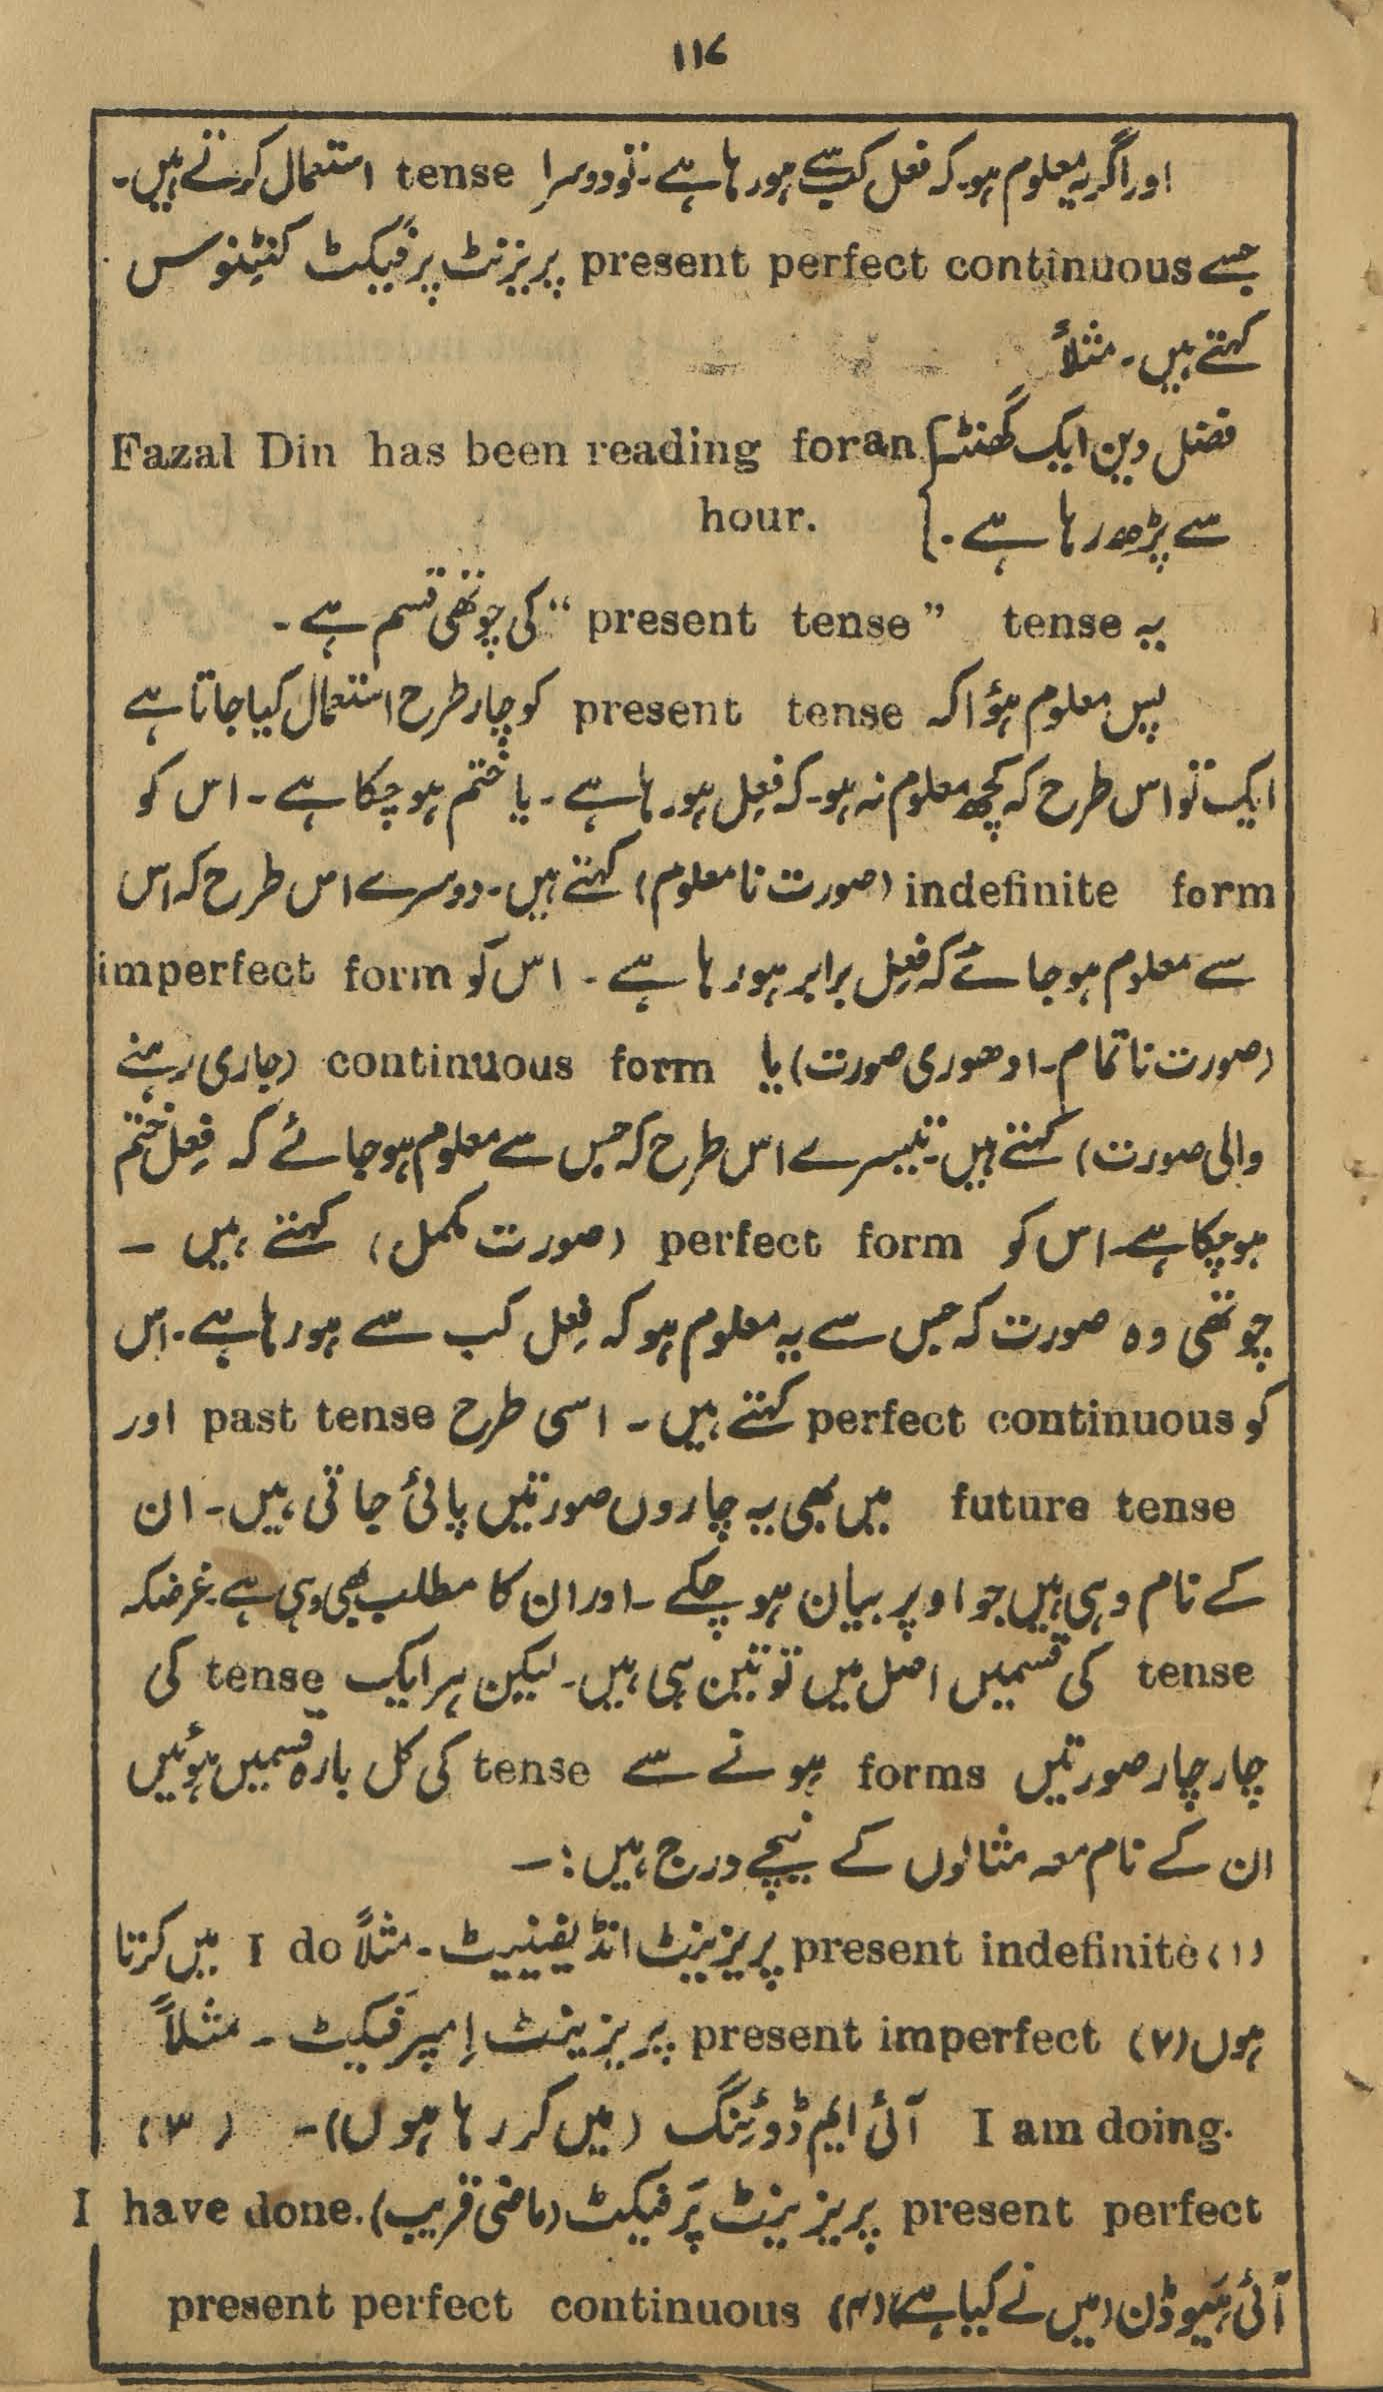 ۱۱۷
اور اگر یہ معلوم ہو۔ کہ فعل کب سے ہو رہا ہے۔ تو دوسرا tense استعمال کرتے ہیں۔
جسے present perfect continuous پریزنٹ پرفیکٹ کنٹنوس
کہتے ہیں۔ مثلاً
فضل دین ایک گھنٹہ } Fazal Din has been reading for an
سے پڑھ رہا ہے۔ } hour.
یہ tense “present tense” کی چوتھی قسم ہے۔
پس معلوم ہؤا کہ present tense کو چار طرح استعمال کیا جاتا ہے
ایک تو اس طرح کہ کچھ معلوم نہ ہو۔ کہ فِعل ہو رہا ہے۔ یا ختم ہو چکا ہے۔ اس کو
indefinite form (صورت نامعلوم) کہتے ہیں۔ دوسرے اس طرح کہ اس
سے معلوم ہو جائے کہ فِعل برابر ہو رہا ہے۔ اس کو imperfect form
(صورت ناتمام۔ ادھوری صورت) یا continuous form (جاری رہنے
والی صورت) کہتے ہیں۔ تیسرے اس طرح کہ جس سے معلوم ہو جائے کہ فِعل ختم
ہو چکا ہے۔ اس کو perfect form (صورت مکمل) کہتے ہیں ۔
چوتھی وہ صورت کہ جس سے یہ معلوم ہو کہ فِعل کب سے ہو رہا ہے۔ اس
کو perfect continuous کہتے ہیں ۔ اسی طرح past tense اور
future tense میں بھی یہ چاروں صورتیں پائی جاتی ہیں۔ ان
کے نام وہی ہیں جو اوپر بیان ہو چکے ۔ اور ان کا مطلب بھی وہی ہے۔ غرضکہ
tense کی قسمیں اصل میں تو تین ہی ہیں۔ لیکن ہر ایک tense کی
چار چار صورتیں forms ہونے سے tense کی کل بارہ قسمیں ہوئیں
ان کے نام معہ مثالوں کے نیچے درج ہیں :۔
(۱) present indefinite پریزینٹ انڈیفینیٹ۔ مثلاً I do میں کرتا
ہوں (۲) present imperfect پریزینٹ اِمپرَفیکٹ ۔ مثلاً
I am doing. آئی ایم ڈوئنگ (میں کر رہا ہوں)۔ (۳)
present perfect پریزینٹ پَرفیکٹ (ماضی قریب) I have done.
آئی ہَیو ڈن (میں نے کیا ہے) (۴) present perfect continuous